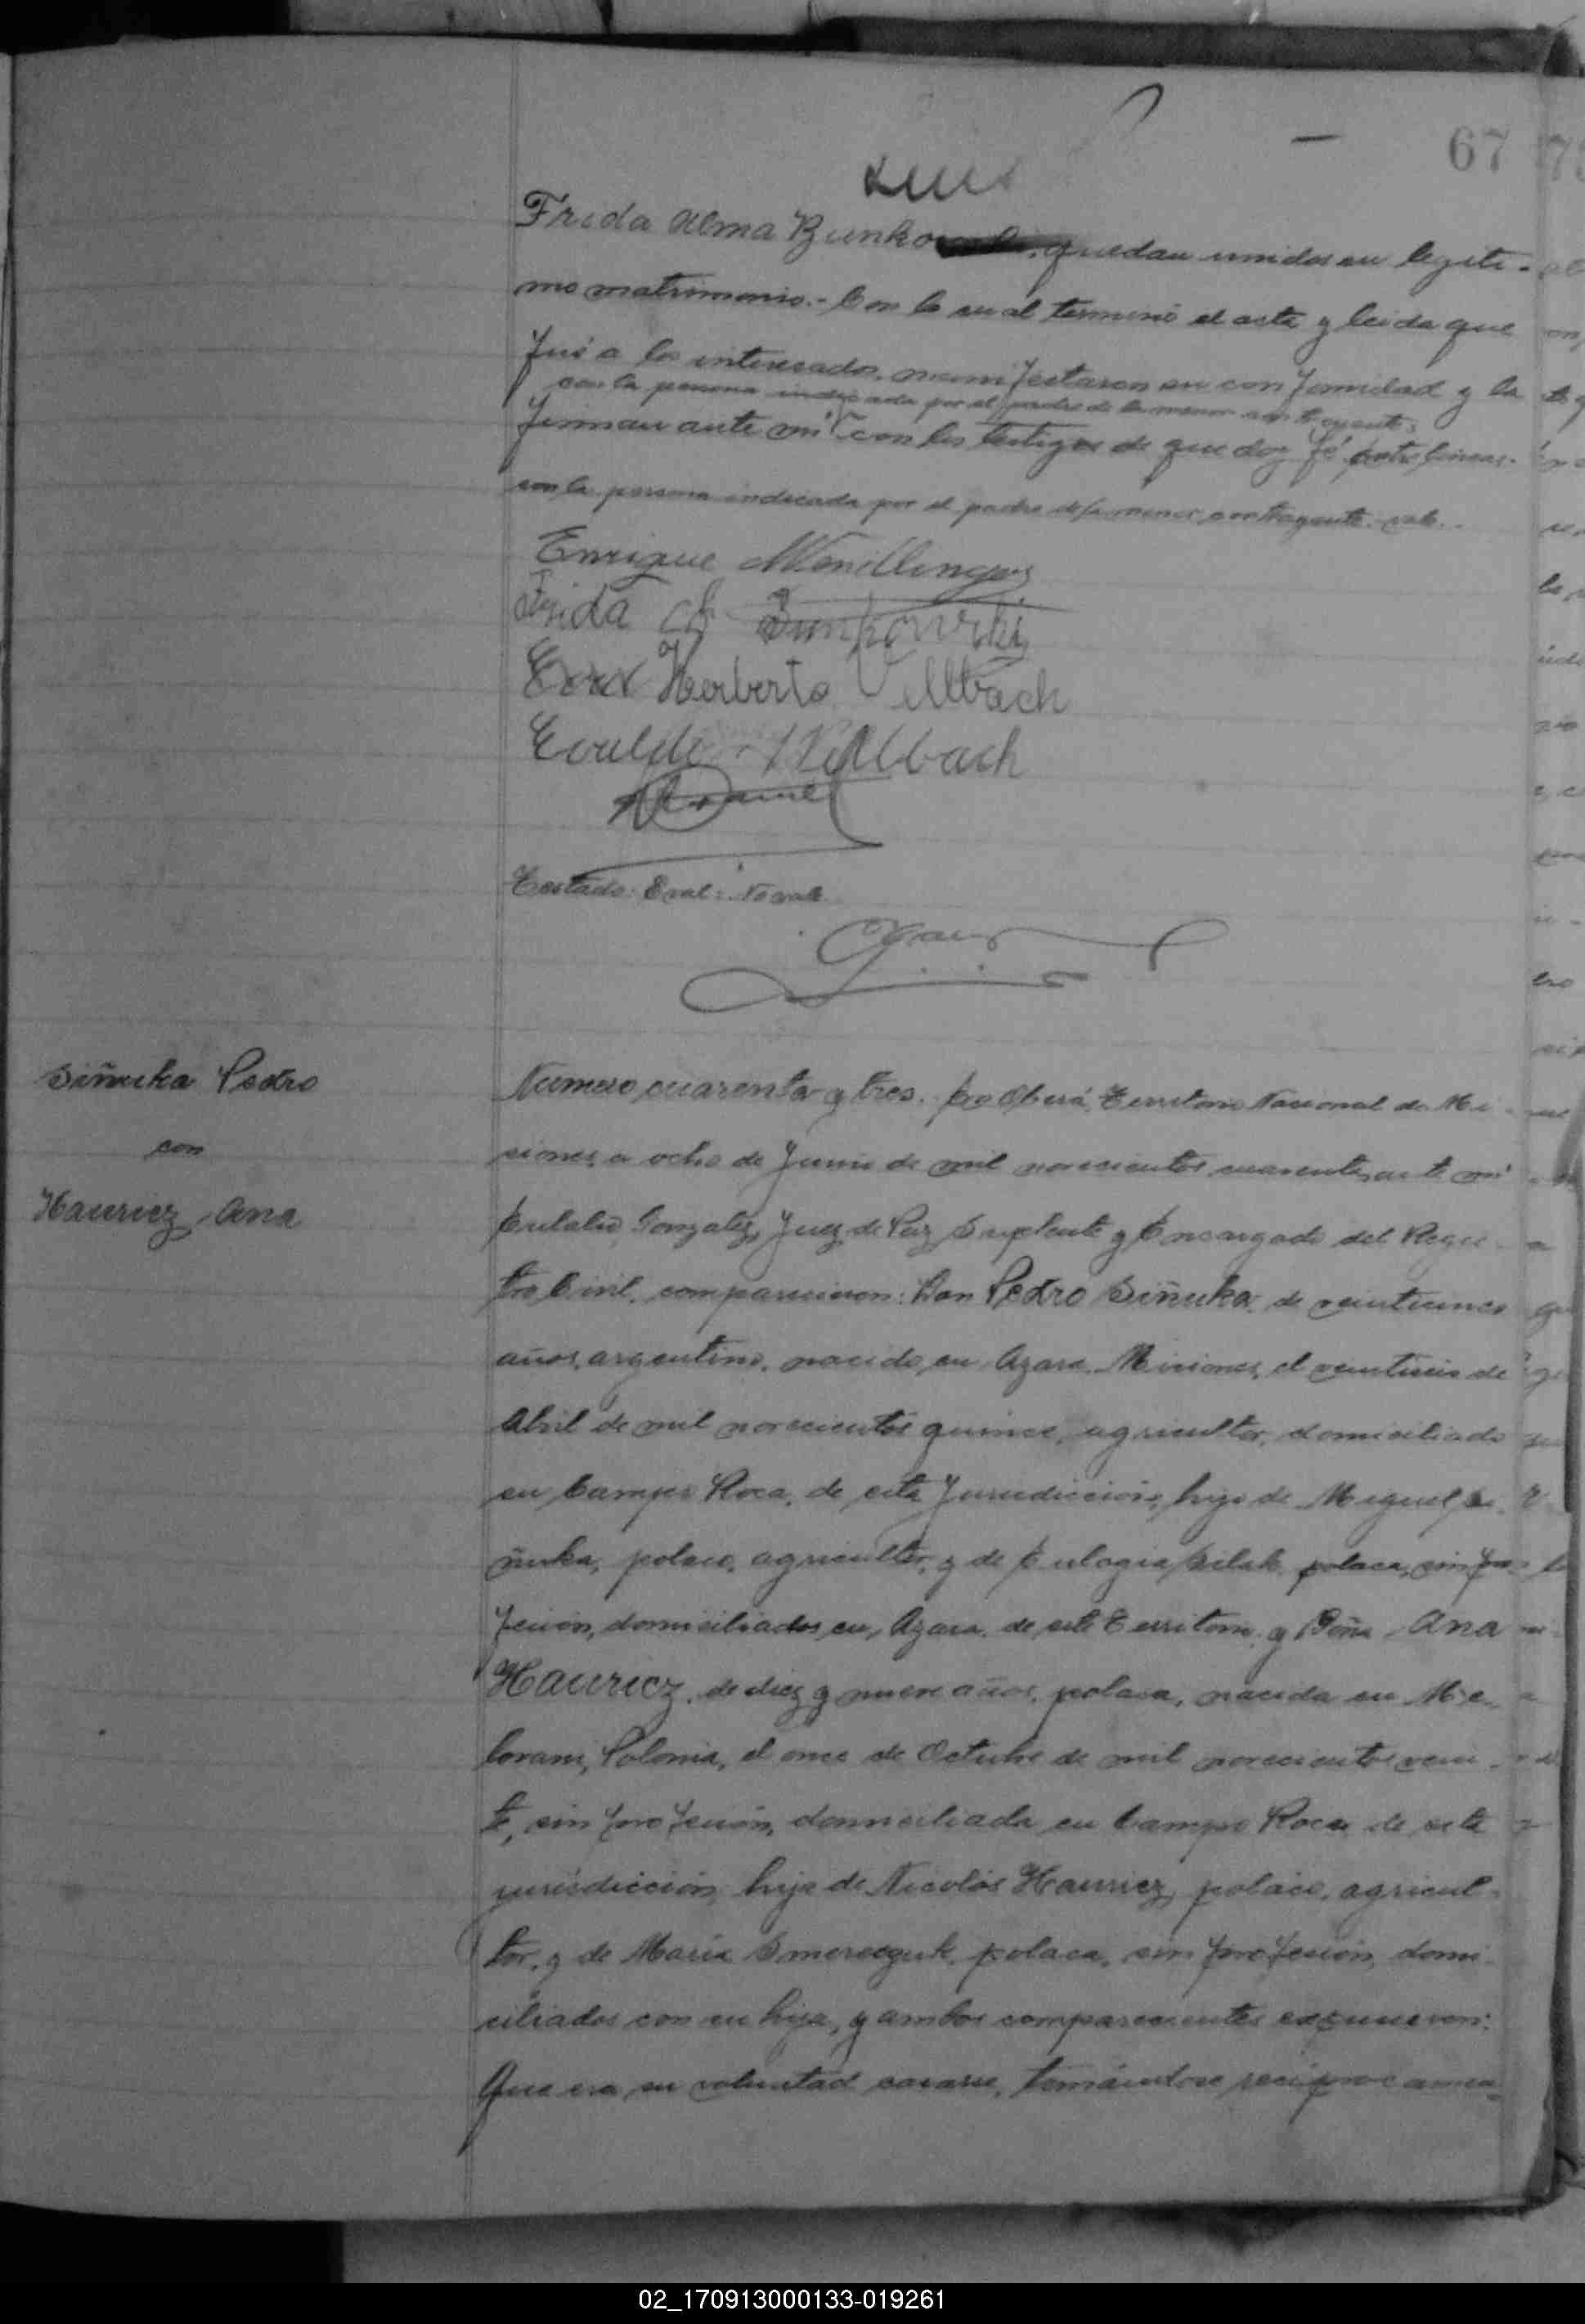 67
Frida Alma Bunko quedan unidos en legiti-
mo matrimonio.- Con lo cual terminó el acta y leida que
fué a los interesados, manifestaron su conformidad y la
con la persona indicada por el padre de la menor contrayente
firman ante mí con los testigos de que doy fé. Entre lineas-
con la persona indicada por el padre de la menor contrayente. vale.-
Enrique
Frida A Bunkowski
Herberto Vellbach
Evaldo Wellbach
Testado: Eval: No vale
Siñuka Pedro
con
Hauricz, Ana
Numero cuarenta y tres. En Oberá, Territorio Nacional de Mi-
siones, a ocho de Junio de mil novecientos cuarenta, ante mí
Eulalio Gonzalez, Juez de Paz Suplente y Encargado del Regis-
tro Civil, comparecieron: Don Pedro Siñuka, de veinticinco
años, argentino, nacido en Azara, Misiones, el veintiseis de
Abril de mil novecientos quince, agricultor, domiciliado
en Campo Roca, de esta Jurisdicción, hijo de Miguel Si-
ñuka, polaco, agricultor, y de Eulogia polaca, sin pro-
fesión, domiciliados en Azara, de este Territorio y Doña Ana
Hauricz, de diez y nueve años, polaca, nacida en
Polonia, el once de Octubre de mil novecientos vein-
te, sin profesión, domiciliada en Campo Roca de esta
jurisdicción, hija de Nicolás Hauricz, polaco, agricul-
tor, y de María Smereczuk, polaca, sin profesión, domi-
ciliados con su hija, y ambos comparecientes expusieron:
Que era su voluntad casarse, tomándose recíprocamen-
02_170913000133-019261